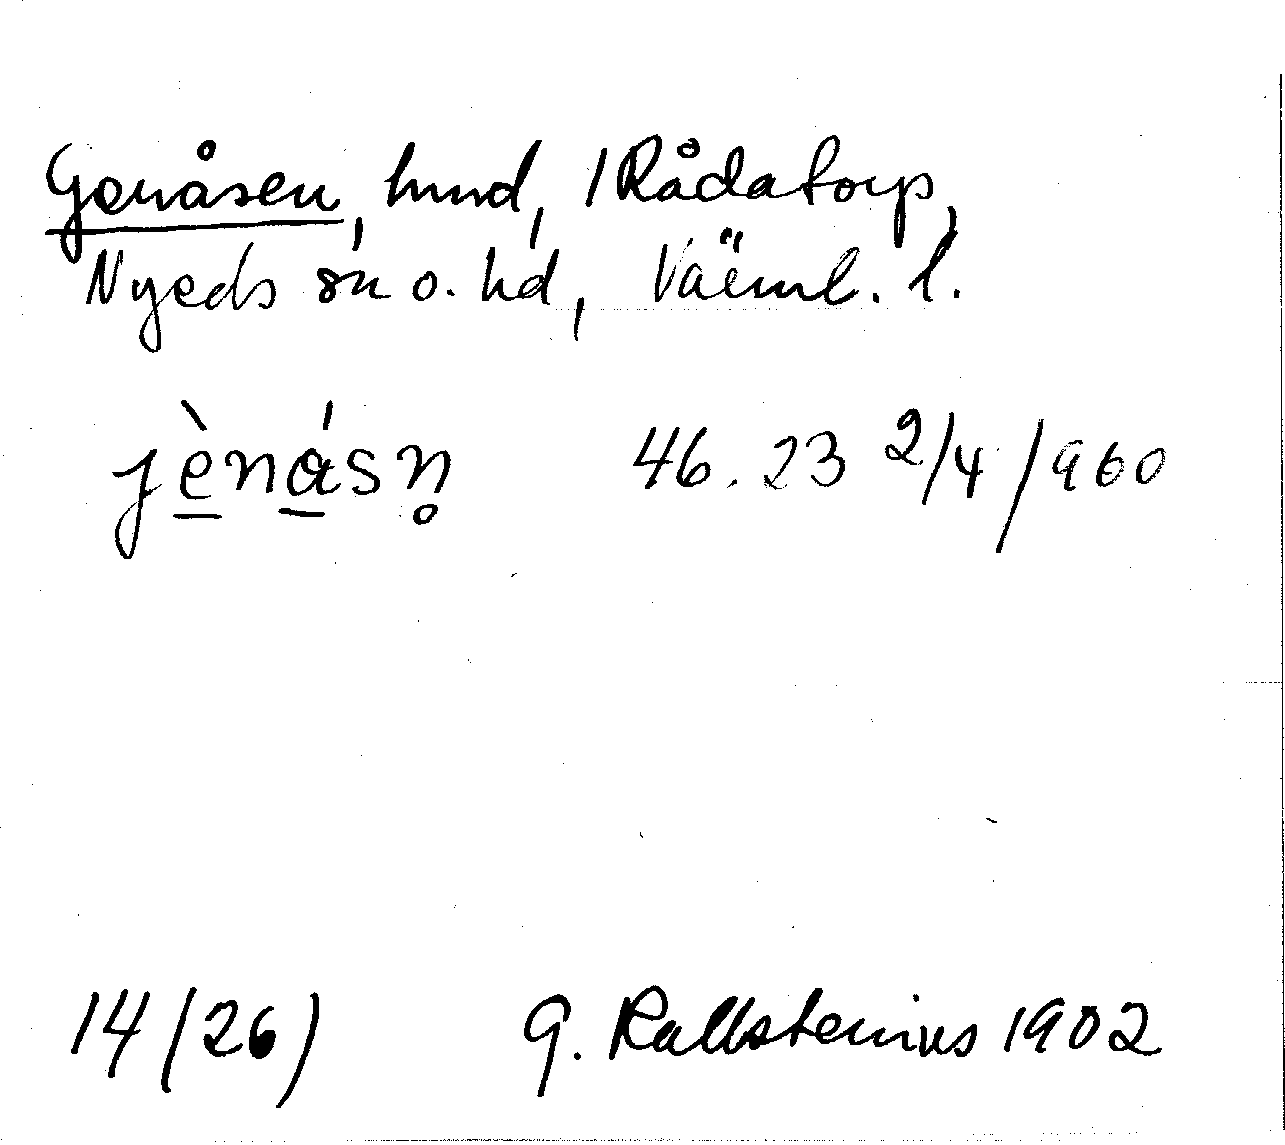 Genåsen, hmd, 1 Rådatorp,
Nyeds sn o. hd, Värml. l.
jènásn̥ 46. 23 2/4/960
14 (26) G. Kallstenius 1902